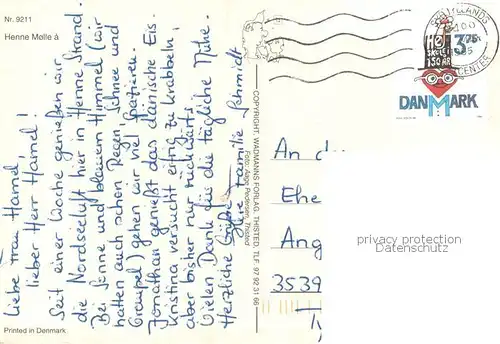 Nr. 9211
Henne Mølle å
Liebe Frau Hamel,
lieber Herr Hamel!
Seit einer Woche genießen wir
die Nordseeluft hier in Henne Strand.
Bei Sonne und blauem Himmel (wir
hatten auch schon Regen, Schnee und
Graupel) gehen wir viel spazieren.
Jonathan genießt das dänische Eis.
Kristina versucht eifrig zu krabbeln,
aber bisher nur rückwärts.
Vielen Dank für die tägliche Mühe.
Herzliche Grüße
Ihre Familie Schmidt
Printed in Denmark.
COPYRIGHT: WADMANNS FORLAG, THISTED, TLF. 97 92 31 66
Foto: Aage Pedersen, Thisted
SYDJYLLANDS
POSTCENTER
HØJ
SKOLE
150 ÅR
3.75
DANMARK
An d
Ehe
Ang
3539
privacy protection
Datenschutz